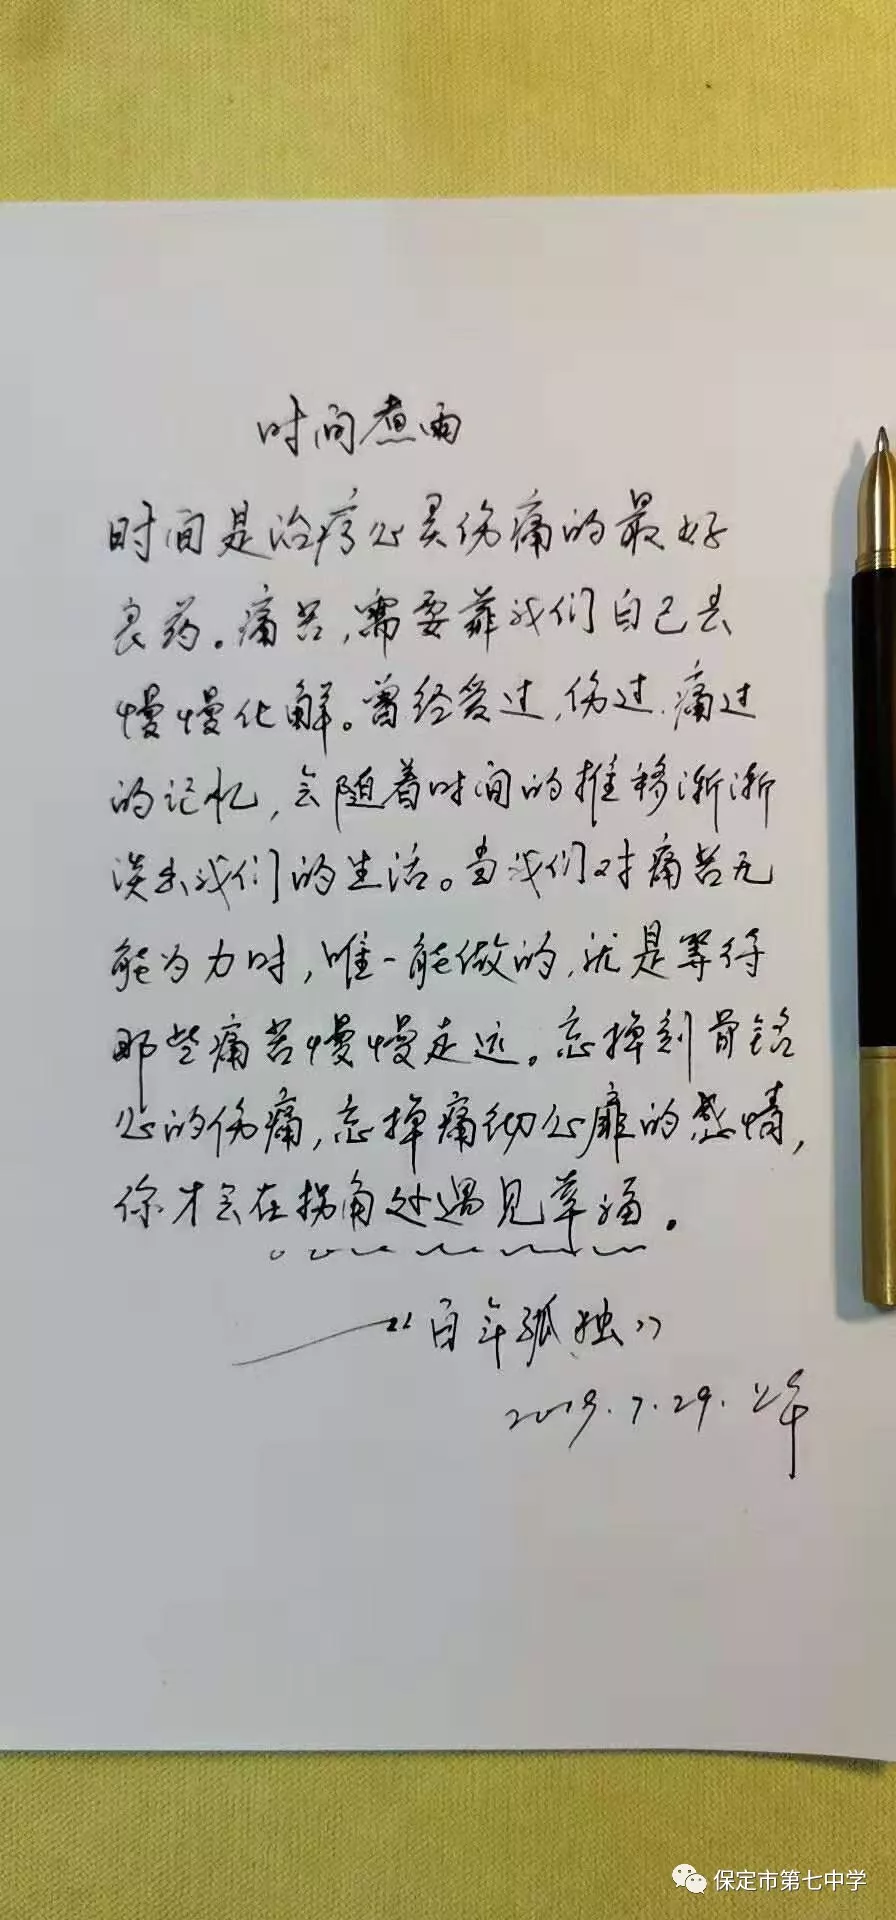 时间煮雨
时间是治疗心灵伤痛的最好
良药。痛苦,需要靠我们自己去
慢慢化解。曾经爱过,伤过.痛过
的记忆,会随着时间的推移渐渐
淡出我们的生活。当我们对痛苦无
能为力时,唯一能做的,就是等待
那些痛苦慢慢走远。忘掉刻骨铭
心的伤痛,忘掉痛彻心扉的感情,
你才会在拐角处遇见幸福。
——“百年孤独”
2019.7.29.上午
保定市第七中学